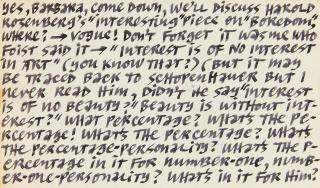 YES, BARBARA, COME DOWN, WE'LL DISCUSS HAROLD
ROSENBERG'S "INTERESTING" PIECE ON "BOREDOM",
WHERE? → VOGUE! DON'T FORGET IT WAS ME WHO
FOIST SAID IT → "INTEREST IS OF NO INTEREST
IN ART" (YOU KNOW THAT?) (BUT IT MAY
BE TRACED BACK TO SCHOPENHAUER BUT I
NEVER READ HIM, DIDN'T HE SAY "INTEREST
IS OF NO BEAUTY?" "BEAUTY IS WITHOUT INT-
EREST?" WHAT PERCENTAGE? WHATS THE PE-
RCENTAGE! WHATS THE PERCENTAGE? WHATS
THE PERCENTAGE-PERSONALITY? WHATS THE P-
ERCENTAGE IN IT FOR NUMBER-ONE, NUMB-
ER-ONE-PERSONALITY? WHATS IN IT FOR HIM?